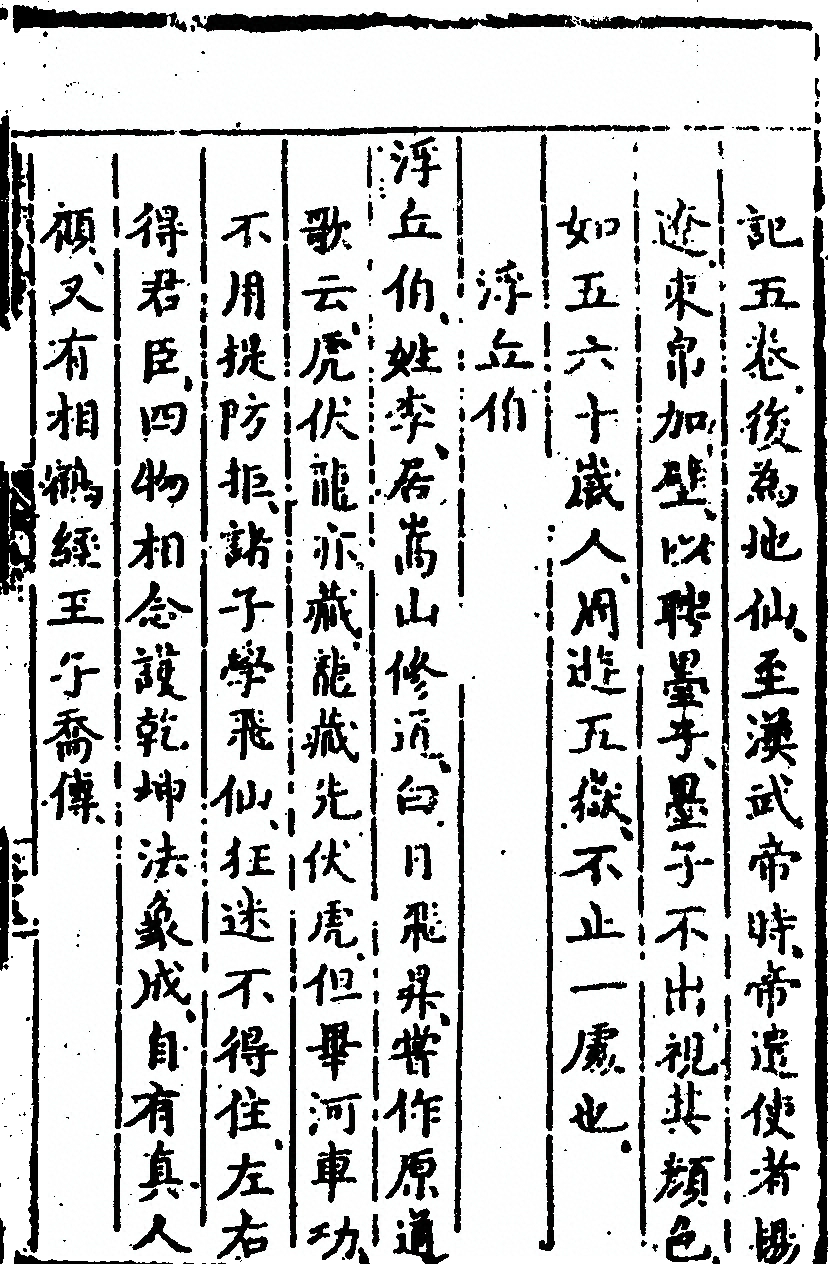 記五卷後為地仙至漢武帝時帝遣使者楊
遼束帛加璧以聘墨子墨子不出視其顔色
如五六十歲人周遊五嶽不止一處也
浮丘伯
浮丘伯姓李居嵩山修道白日飛昇嘗作原道
歌云虎伏龍亦藏龍藏先伏虎但畢河車功
不用提防拒諸子學飛仙狂迷不得住左右
得君臣四物相念護乾坤法象成自有真人
顧又有相鶴經王子喬傳